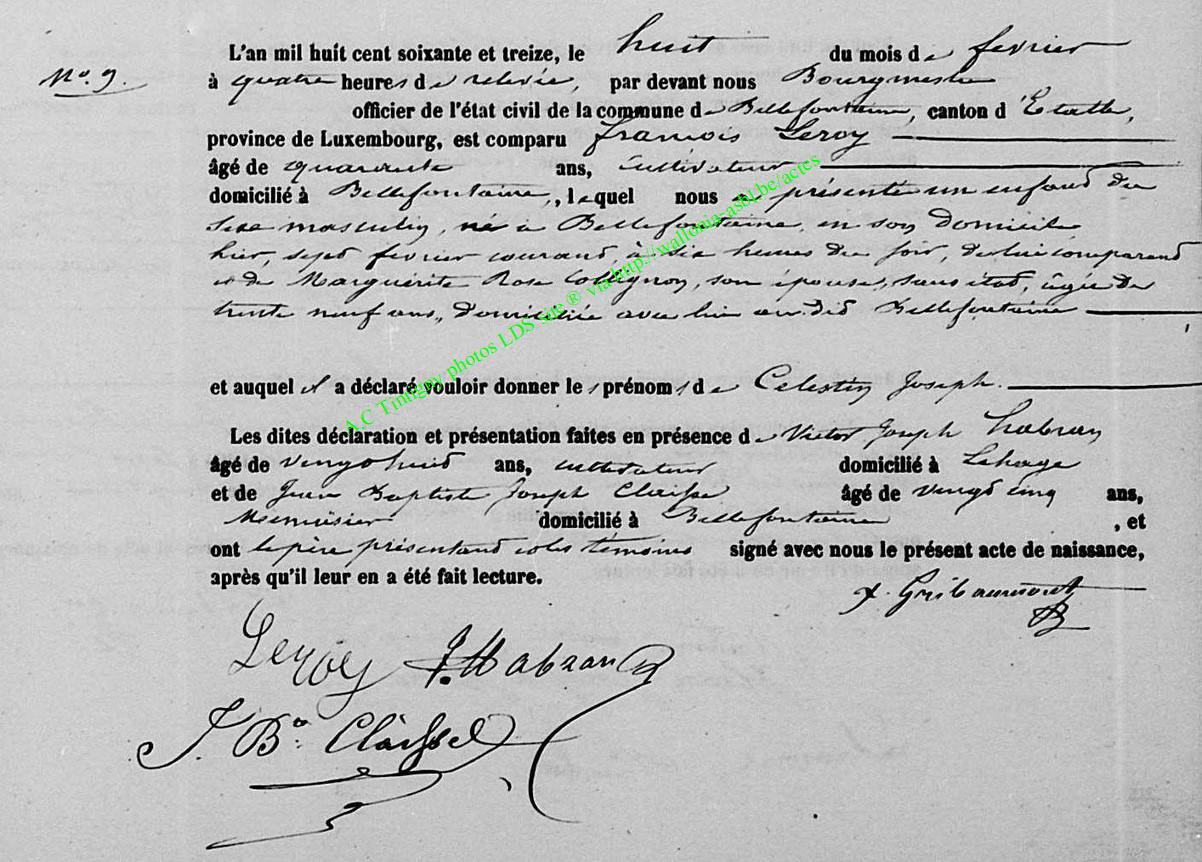 No. 9.
L'an mil huit cent soixante et treize, le huit du mois de fevrier
à quatre heures de relevée, par devant nous Bourgmestre
officier de l'état civil de la commune de Bellefontaine, canton d'Etalle,
province de Luxembourg, est comparu François Leroy
âgé de quarante ans, cultivateur
domicilié à Bellefontaine, lequel nous a présenté un enfand du
sexe masculin, né à Bellefontaine, en son domicile
hier, sept fevrier courand, à six heures du soir, de lui comparand
et de Marguérite Rose Collignon, son épouse, sans étad, âgée de
trente neuf ans, domiciliée avec lui au-did Bellefontaine
et auquel il a déclaré vouloir donner les prénoms de Célestin Joseph.
Les dites déclaration et présentation faites en présence de Victor Joseph Habran
âgé de vingt huid ans, cultivateur domicilié à Lahage
et de Jean Baptiste Joseph Claisse âgé de vingd cinq ans,
Menuisier domicilié à Bellefontaine, et
ont le père présentand et les témoins signé avec nous le présent acte de naissance,
après qu'il leur en a été fait lecture.
Gribaumont
Leroy J. Habran
J. Bte Claisse
A.C Tintigny photos LDS site ® via http://wallonia-asbl.be/actes